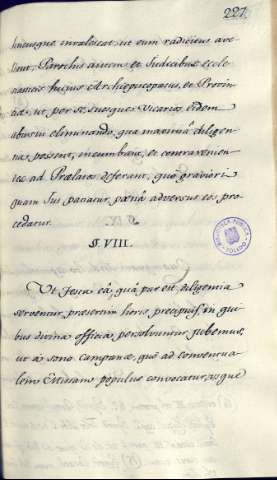 227.
hucusque invaluit, ut eum radicitus avel
lant, Parochis autem et Judicibus eccle
siasticis hujus Archiepiscopatus, et Provin
ciæ, ut per se, suosque Vicarios eidem
abusui eliminando, qua maxima diligen
tia possent, incumbant, et contravenien
tes ad Prælatos deferent, quo graviori
quam Jus patiatur, pœna adversus eos pro
cedatur.
§. VIII.
Ut festa ea, qua par est, diligentia
serventur, presertim horis, præcipuis, in qui
bus divina officia persolvuntur, jubemus,
ut a sono Campanæ, quo ad Conventua
lem Missam populus convocatur, usque
BIBLIOTECA PUBLICA
TOLEDO